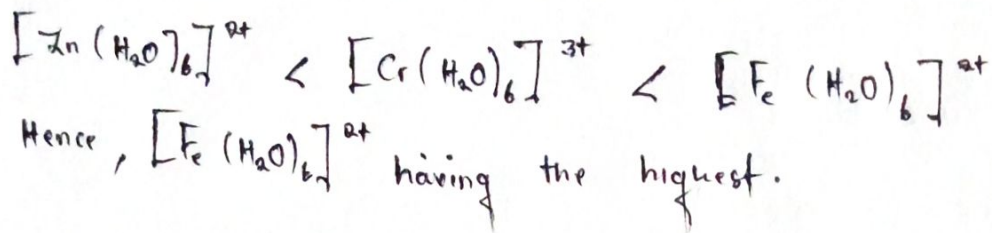 [Zn(H₂O)₆]²⁺ < [Cr(H₂O)₆]³⁺ < [Fe (H₂O)₆]²⁺
Hence, [Fe (H₂O)₆]²⁺ having the highest.